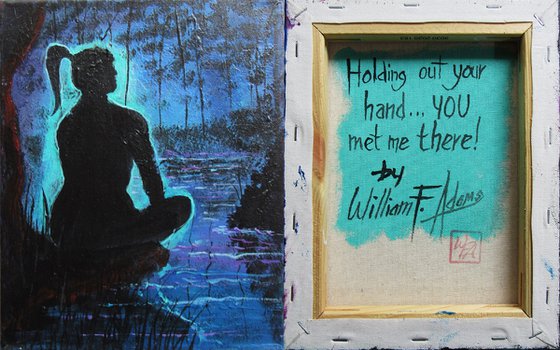 Holding out your
hand... YOU
met me there!
by
William F. Adams